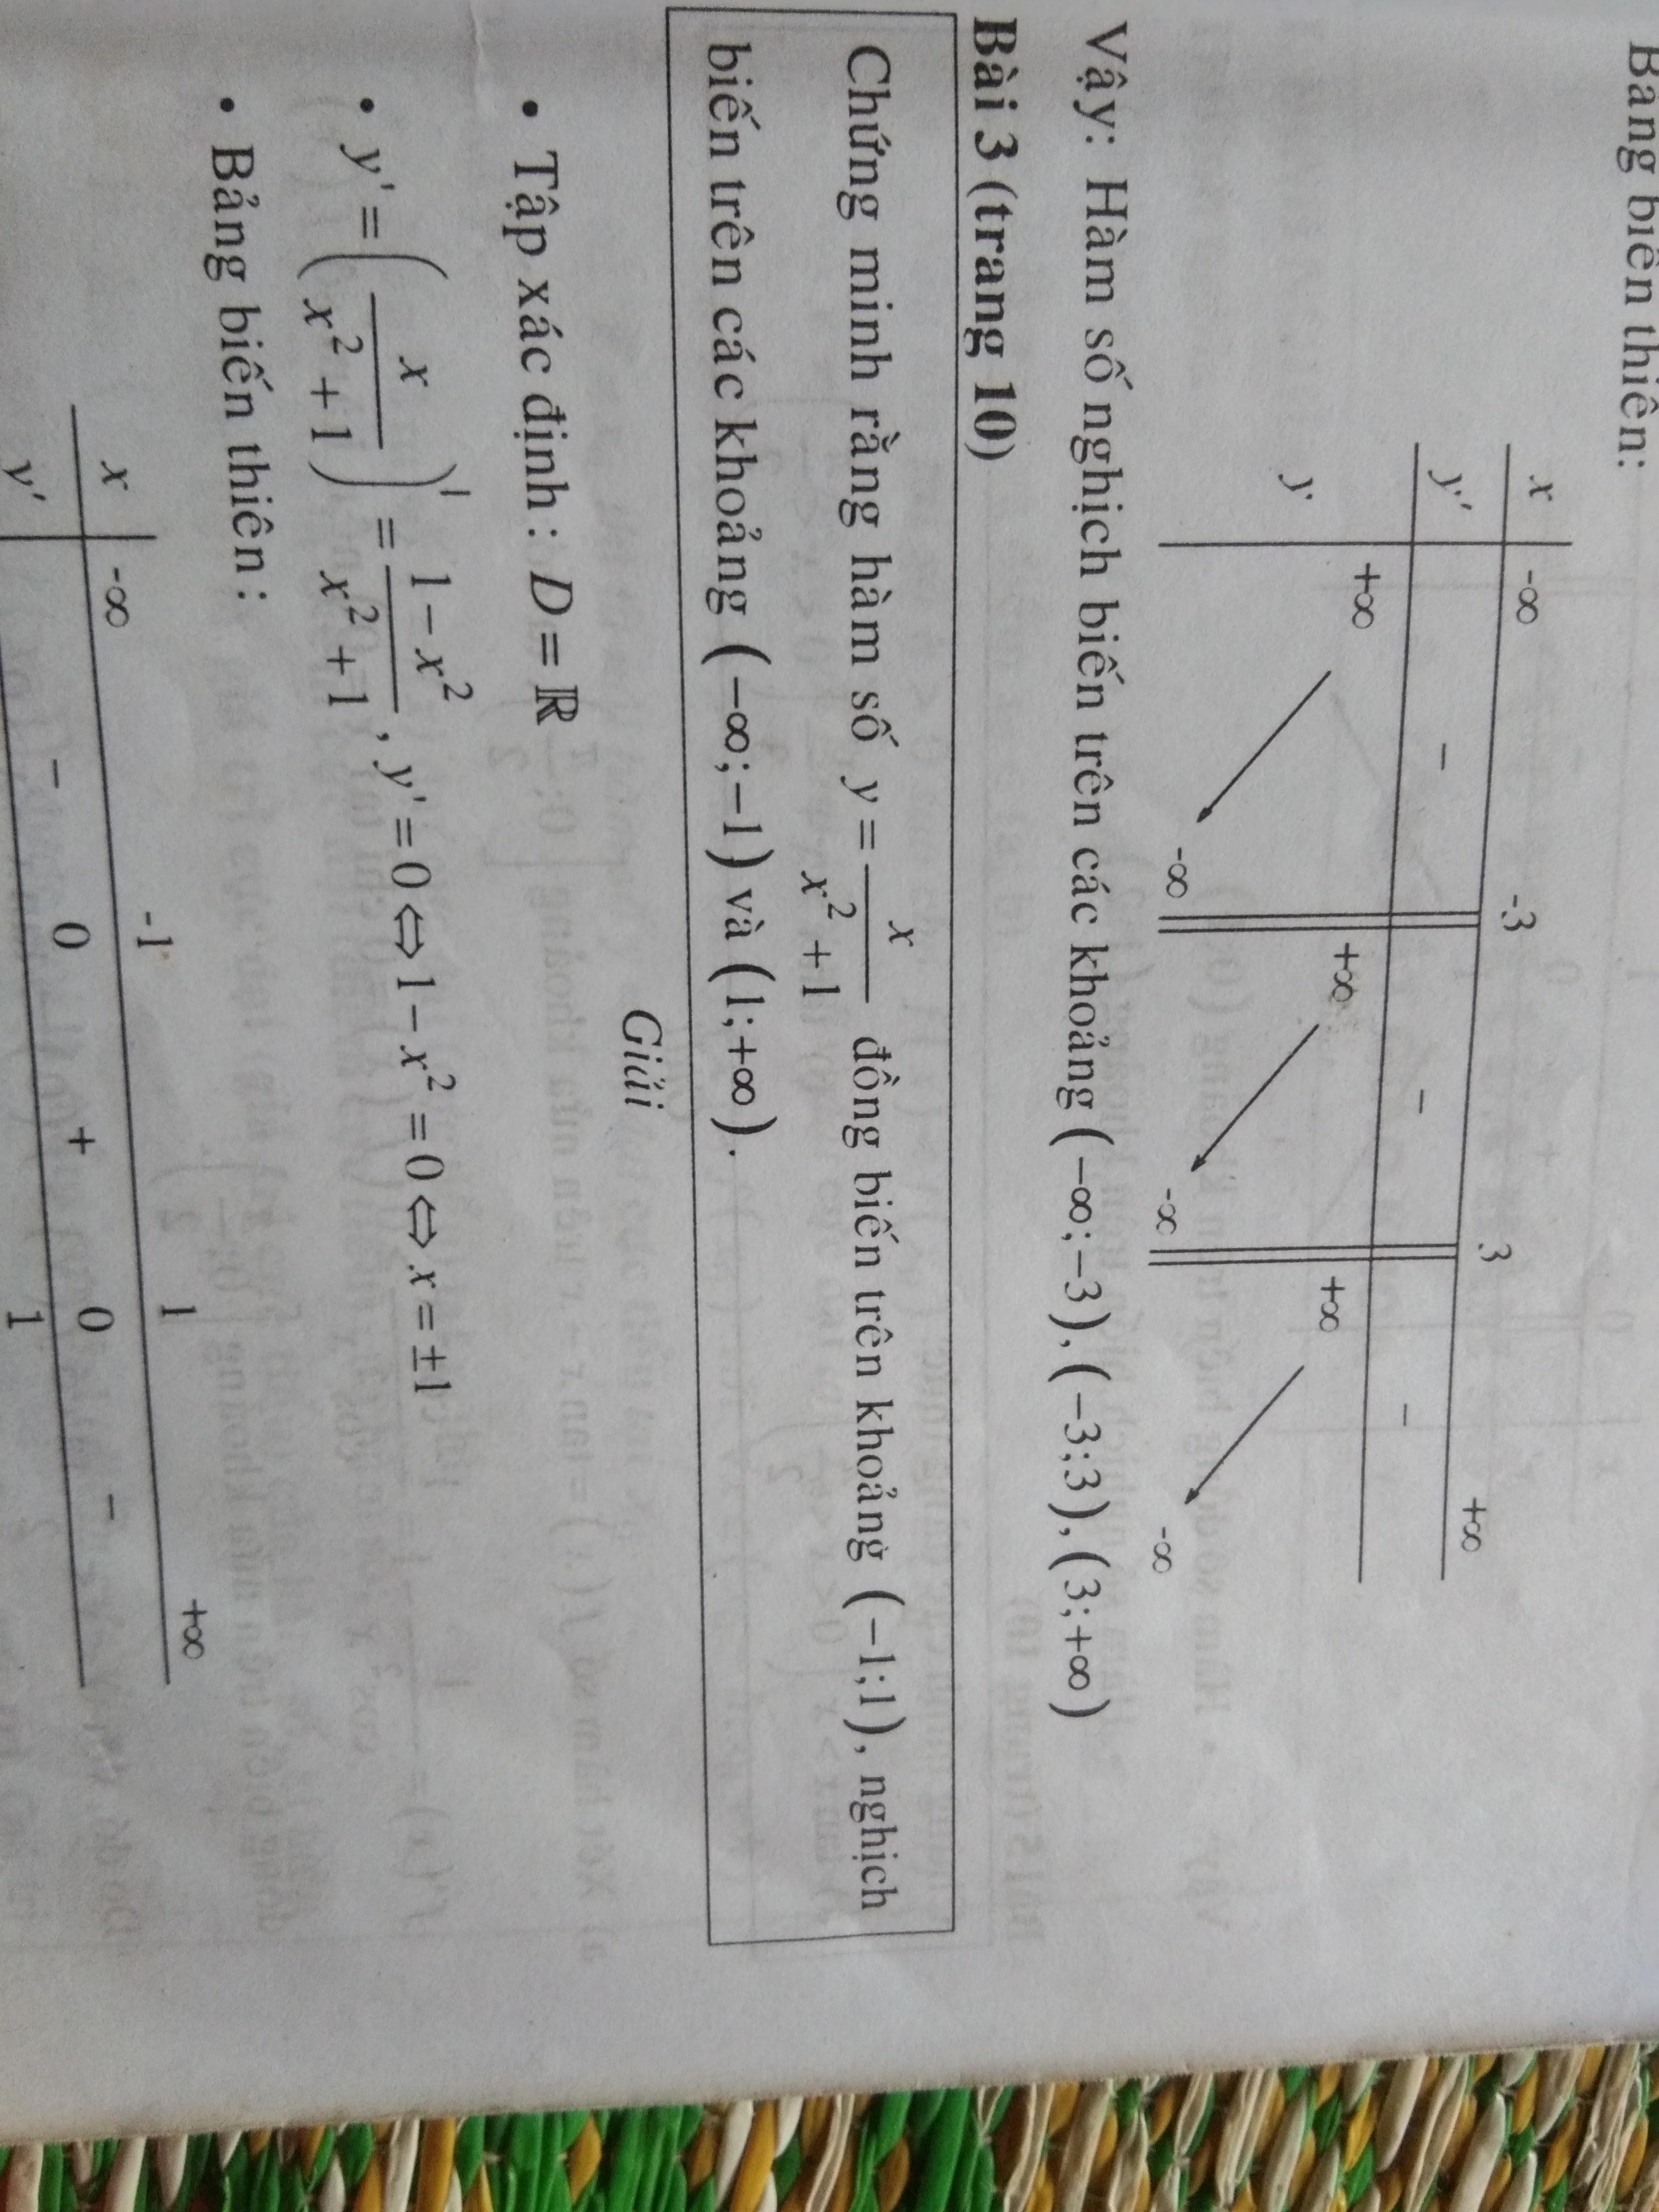 Bảng biến thiên:
x -∞ -3 3 +∞
y' - - -
y +∞ -∞ +∞ -∞ +∞ -∞
Vậy: Hàm số nghịch biến trên các khoảng (-∞;-3), (-3;3), (3;+∞)
Bài 3 (trang 10)
Chứng minh rằng hàm số y = x/(x²+1) đồng biến trên khoảng (-1;1), nghịch
biến trên các khoảng (-∞;-1) và (1;+∞).
Giải
• Tập xác định: D = ℝ
• y' = (x/(x²+1))' = (1-x²)/(x²+1), y' = 0 ⇔ 1-x² = 0 ⇔ x = ±1
• Bảng biến thiên:
x -∞ -1 1 +∞
y' - 0 + 0 -
1